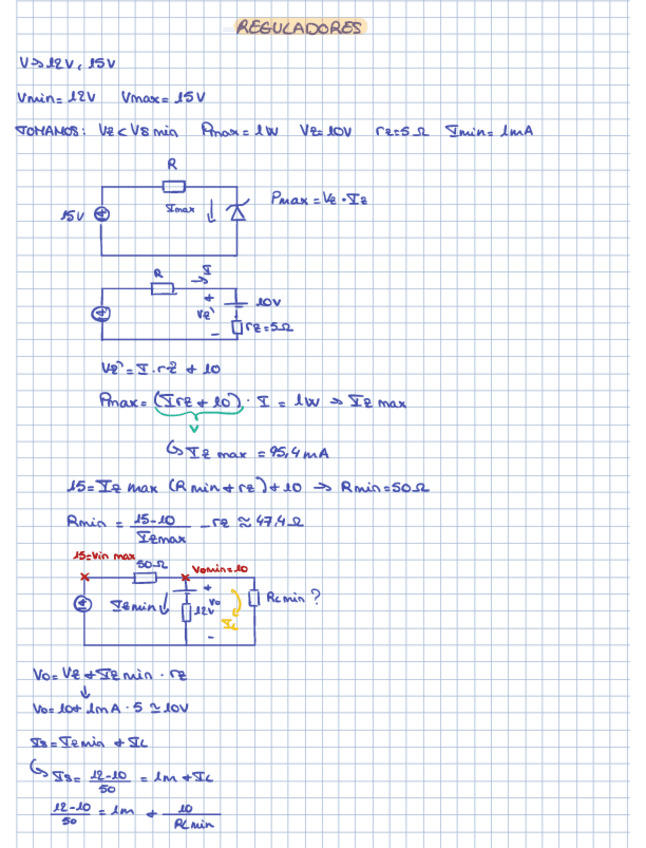 REGULADORES
V⇒12V, 15V
Vmin= 12V Vmax= 15V
TOMAMOS: Vz < Vs min Pmax= 1W Vz= 10V rz=5Ω Imin= 1mA
R
15V Imax ↓ Pmax= Vz · Iz
R I
+ 10V
Vz'
- rz=5Ω
Vz' = I · rz + 10
Pmax= (Irz + 10) · I = 1W ⇒ Iz max
V
↳ Iz max = 95,4 mA
15= Iz max (Rmin + rz) + 10 → Rmin= 50Ω
Rmin = 15-10 / Izmax - rz ≈ 47,4Ω
15=Vin max 50Ω Vomin=10
Izmin ↓ 12V + Vo - IL RLmin ?
Vo= Vz + Iz min · rz
↓
Vo= 10+ 1mA · 5 ≃ 10V
Is= Izmin + IL
↳ Is= 12-10 / 50 = 1m + IL
12-10 / 50 = 1m + 10 / RLmin